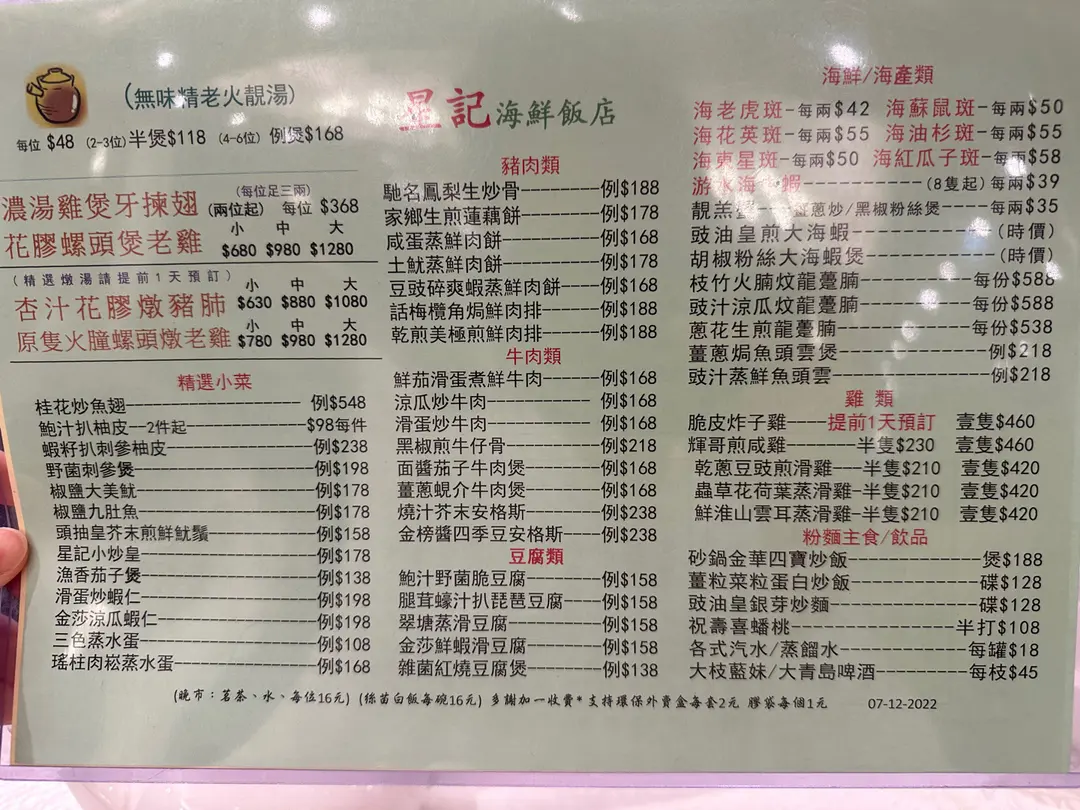 (無味精老火靚湯)
每位 $48 (2-3位)半煲$118 (4-6位) 例煲$168
濃湯雞煲牙揀翅 (每位足三兩) (兩位起) 每位 $368
花膠螺頭煲老雞 小 $680 中 $980 大 $1280
(精選燉湯請提前1天預訂)
杏汁花膠燉豬肺 小 $630 中 $880 大 $1080
原隻火朣螺頭燉老雞 小 $780 中 $980 大 $1280
精選小菜
桂花炒魚翅------------------ 例$548
鮑汁扒柚皮--2件起------------$98每件
蝦籽扒刺參柚皮---------------例$238
野菌刺參煲------------------例$198
椒鹽大美魷------------------例$178
椒鹽九肚魚------------------例$178
頭抽皇芥末煎鮮魷鬚-----------例$158
星記小炒皇------------------例$178
漁香茄子煲------------------例$138
滑蛋炒蝦仁------------------例$198
金莎涼瓜蝦仁----------------例$198
三色蒸水蛋------------------例$108
瑤柱肉崧蒸水蛋---------------例$168
星記海鮮飯店
豬肉類
馳名鳳梨生炒骨---------例$188
家鄉生煎蓮藕餅---------例$178
咸蛋蒸鮮肉餅-----------例$168
土魷蒸鮮肉餅-----------例$178
豆豉碎爽蝦蒸鮮肉餅-----例$168
話梅欖角焗鮮肉排-------例$188
乾煎美極煎鮮肉排-------例$188
牛肉類
鮮茄滑蛋煮鮮牛肉------例$168
涼瓜炒牛肉-----------例$168
滑蛋炒牛肉-----------例$168
黑椒煎牛仔骨---------例$218
面醬茄子牛肉煲-------例$168
薑蔥蜆介牛肉煲-------例$168
燒汁芥末安格斯-------例$238
金榜醬四季豆安格斯----例$238
豆腐類
鮑汁野菌脆豆腐-------例$158
腿茸蠔汁扒琵琶豆腐----例$158
翠塘蒸滑豆腐---------例$158
金莎鮮蝦滑豆腐-------例$158
雜菌紅燒豆腐煲-------例$138
海鮮/海產類
海老虎斑-每兩$42 海蘇鼠斑-每兩$50
海花英斑-每兩$55 海油杉斑-每兩$55
海東星斑-每兩$50 海紅瓜子斑-每兩$58
游水海 蝦------------(8隻起)每兩$39
靚羔蟹 薑蔥炒/黑椒粉絲煲----每兩$35
豉油皇煎大海蝦-------------(時價)
胡椒粉絲大海蝦煲-----------(時價)
枝竹火腩炆龍躉腩----------每份$588
豉汁涼瓜炆龍躉腩----------每份$588
蔥花生煎龍躉腩-----------每份$538
薑蔥焗魚頭雲煲------------例$218
豉汁蒸鮮魚頭雲------------例$218
雞 類
脆皮炸子雞----提前1天預訂 壹隻$460
輝哥煎咸雞-------半隻$230 壹隻$460
乾蔥豆豉煎滑雞---半隻$210 壹隻$420
蟲草花荷葉蒸滑雞-半隻$210 壹隻$420
鮮淮山雲耳蒸滑雞-半隻$210 壹隻$420
粉麵主食/飲品
砂鍋金華四寶炒飯-----------煲$188
薑粒菜粒蛋白炒飯-----------碟$128
豉油皇銀芽炒麵------------碟$128
祝壽喜蟠桃--------------半打$108
各式汽水/蒸餾水-----------每罐$18
大枝藍妹/大青島啤酒--------每枝$45
(晚市：茗茶、水、每位16元) (絲苗白飯每碗16元) 多謝加一收費*支持環保外賣盒每套2元 膠袋每個1元 07-12-2022